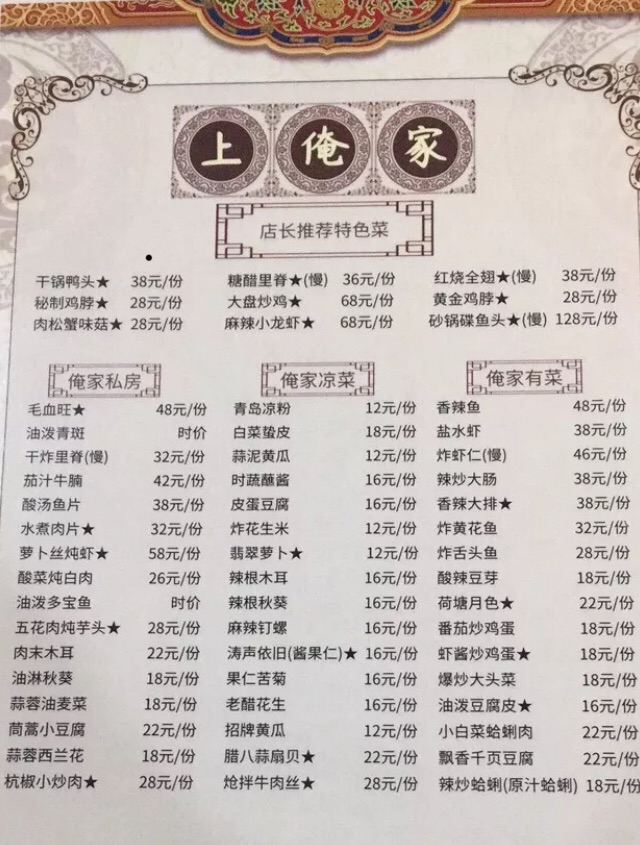 上俺家
店长推荐特色菜
干锅鸭头★ 38元/份 糖醋里脊★(慢) 36元/份 红烧全翅★(慢) 38元/份
秘制鸡脖★ 28元/份 大盘炒鸡★ 68元/份 黄金鸡脖★ 28元/份
肉松蟹味菇★ 28元/份 麻辣小龙虾★ 68元/份 砂锅碟鱼头★(慢) 128元/份
俺家私房
毛血旺★ 48元/份
油泼青斑 时价
干炸里脊(慢) 32元/份
茄汁牛腩 42元/份
酸汤鱼片 38元/份
水煮肉片★ 32元/份
萝卜丝炖虾★ 58元/份
酸菜炖白肉 26元/份
油泼多宝鱼 时价
五花肉炖芋头★ 28元/份
肉末木耳 22元/份
油淋秋葵 18元/份
蒜蓉油麦菜 18元/份
茼蒿小豆腐 22元/份
蒜蓉西兰花 18元/份
杭椒小炒肉★ 28元/份
俺家凉菜
青岛凉粉 12元/份
白菜蛰皮 18元/份
蒜泥黄瓜 12元/份
时蔬蘸酱 16元/份
皮蛋豆腐 16元/份
炸花生米 12元/份
翡翠萝卜★ 12元/份
辣根木耳 16元/份
辣根秋葵 16元/份
麻辣钉螺 16元/份
涛声依旧(酱果仁)★ 16元/份
果仁苦菊 16元/份
老醋花生 16元/份
招牌黄瓜 12元/份
腊八蒜扇贝★ 22元/份
炝拌牛肉丝★ 28元/份
俺家有菜
香辣鱼 48元/份
盐水虾 38元/份
炸虾仁(慢) 46元/份
辣炒大肠 38元/份
香辣大排★ 38元/份
炸黄花鱼 32元/份
炸舌头鱼 28元/份
酸辣豆芽 18元/份
荷塘月色★ 22元/份
番茄炒鸡蛋 18元/份
虾酱炒鸡蛋★ 18元/份
爆炒大头菜 18元/份
油泼豆腐皮★ 16元/份
小白菜蛤蜊肉 22元/份
飘香千页豆腐 22元/份
辣炒蛤蜊(原汁蛤蜊) 18元/份